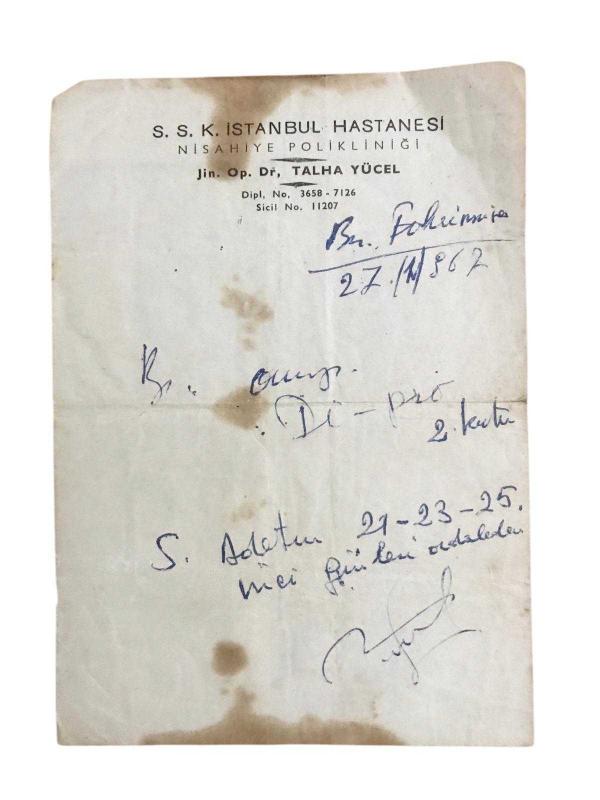 S. S. K. İSTANBUL HASTANESİ
NİSAHİYE POLİKLİNİĞİ
Jin. Op. Dr, TALHA YÜCEL
Dipl, No, 3658 - 7126
Sicil No. 11207
Bn.
27/11/967
Di - pro
2. kutu
S. Adetin 21-23-25.
nici günleri